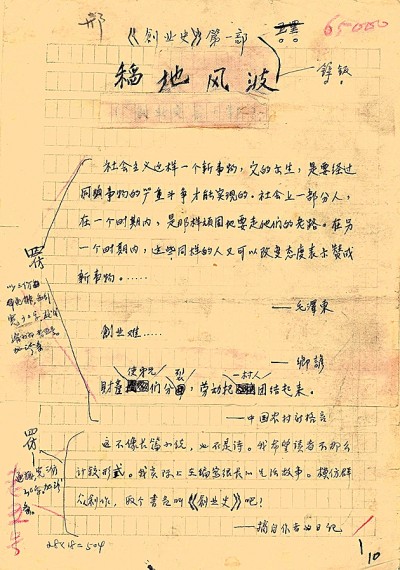 65000
《创业史》第一部
稻地风波
社会主义这样一个新事物，它的出生，是要经过
同旧事物的严重斗争才能实现的。社会上一部分人，
在一个时期内，是那样顽固地要走他们的老路。在另
一个时期内，这些同样的人又可以改变态度表示赞成
新事物。……
——毛泽东
创业难……
——乡谚
使弟兄 裂 一村人
财产 们分 ，劳动把 团结起来。
——中国农村的格言
四仿
这不像长篇小说，也不是诗。我希望读者不那么
计较形式。我实际上在编写很长的生活故事。模仿群
众创作，取个书名叫《创业史》吧！
——摘自作者的日记
四仿
28×18=504
1
10